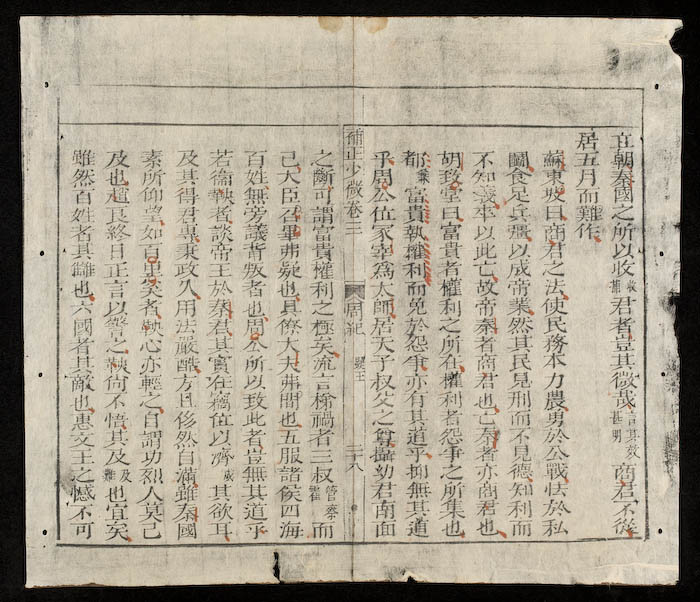 立朝秦國之所以收收捕君者豈其微哉言其效甚明商君不從
居五月而難作
蘇東坡曰商君之法使民務本力農勇於公戰怯於私
鬭食足兵彊以成帝業然其民見刑而不見德知利而
不知義卒以此亡故帝秦者商君也亡秦者亦商君也
胡致堂曰富貴者權利之所在權利者怨爭之所集也
都兼富貴執權利而免於怨爭亦有其道乎抑無其道
乎周公位冢宰為大師居天子叔父之尊攝幼君南面
補正少微卷二 周紀 顯王 三十八
之斷可謂富貴權利之極矣流言搆禍者三叔管蔡霍而
已大臣召畢弗疑也具僚大夫弗間也五服諸侯四海
百姓無旁議背叛者也周公所以致此者豈無其道乎
若衞鞅者談帝王於秦君其實在竊位以濟成其欲耳
及其得君專秉政久用法嚴酷方且侈然自滿雖秦國
素所仰望如百里奚者鞅心亦輕之自謂功烈人莫己
及也趙良終日正言以警之鞅尚不悟其及及難也宜矣
雖然百姓者其讎也六國者其敵也惠文王之憾不可